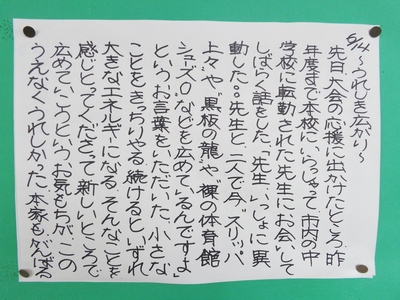 5/14 〜うれしき広がり〜
先日、大会の応援に出かけたところ、昨
年度まで本校にいらっしゃって、市内の中
学校に転勤された先生にお会いして
しばらく話をした。「先生、いっしょに異
動した○○先生と二人で今、"スリッパ
上々"や"黒板の龍"や"裸の体育館
シューズ0"などを広めているんですよ」
というお言葉をいただいた。小さな
ことをきっちりやる続けるといずれ
大きなエネルギーになる。そんなことを
感じとってくださって、新しいところで
広めていこうというお気もちが、この
うえなくうれしかった。本家もがんばる